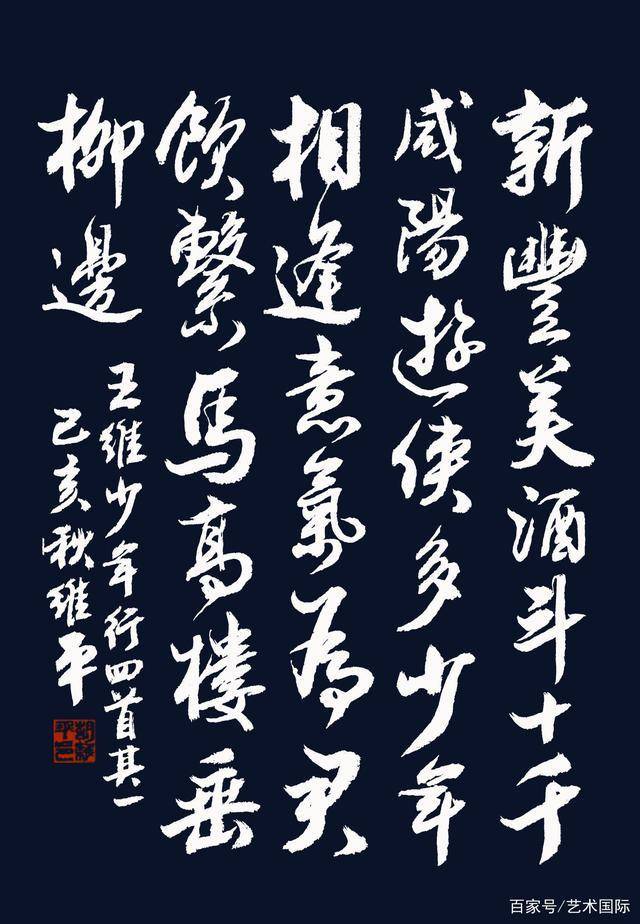 新豐美酒斗十千
咸陽遊使多少年
相逢意氣為君
飲繫馬高樓垂
柳邊
王維少年行四首其一
己亥秋維平
百家号/艺术国际